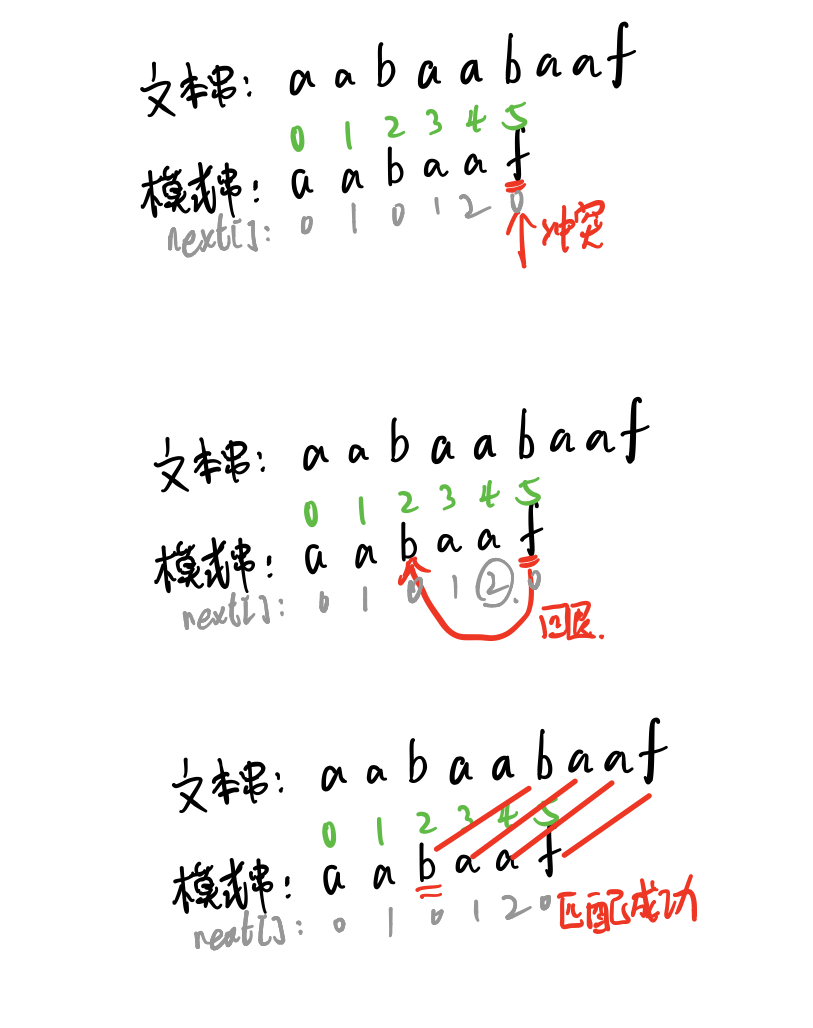 文本串: a a b a a b a a f
0 1 2 3 4 5
模式串: a a b a a f
next[]: 0 1 0 1 2 0
冲突
文本串: a a b a a b a a f
0 1 2 3 4 5
模式串: a a b a a f
next[]: 0 1 0 1 2 0
回退.
文本串: a a b a a b a a f
0 1 2 3 4 5
模式串: a a b a a f
next[]: 0 1 0 1 2 0 匹配成功